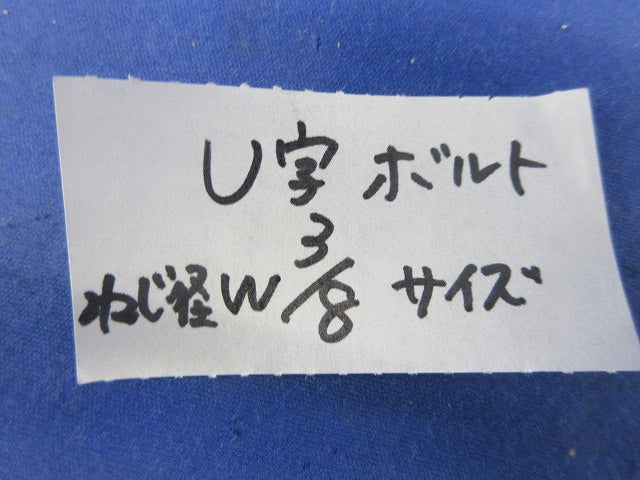 U字ボルト
ねじ径W3/8サイズ